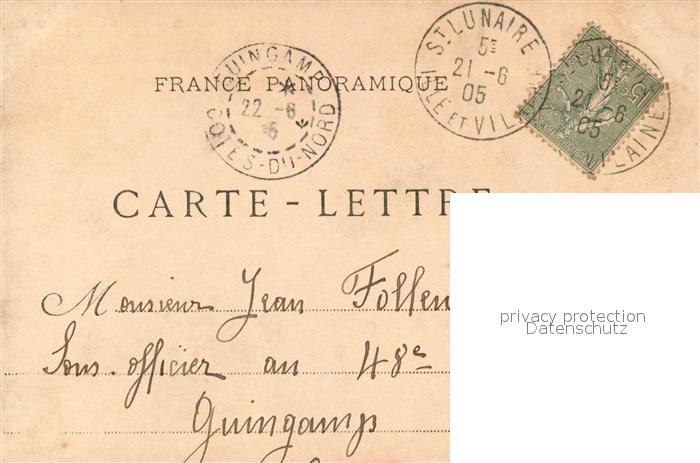 GUINGAMP
22 -6
COTES-DU-NORD
FRANCE PANORAMIQUE
ST LUNAIRE
5E
21 -6
05
ILLE ET VILAINE
5E
21 -6
05
VILAINE
15c
CARTE-LETTRE
Monsieur Jean Follen
Sous-officier au 48e
Guingamp
privacy protection
Datenschutz